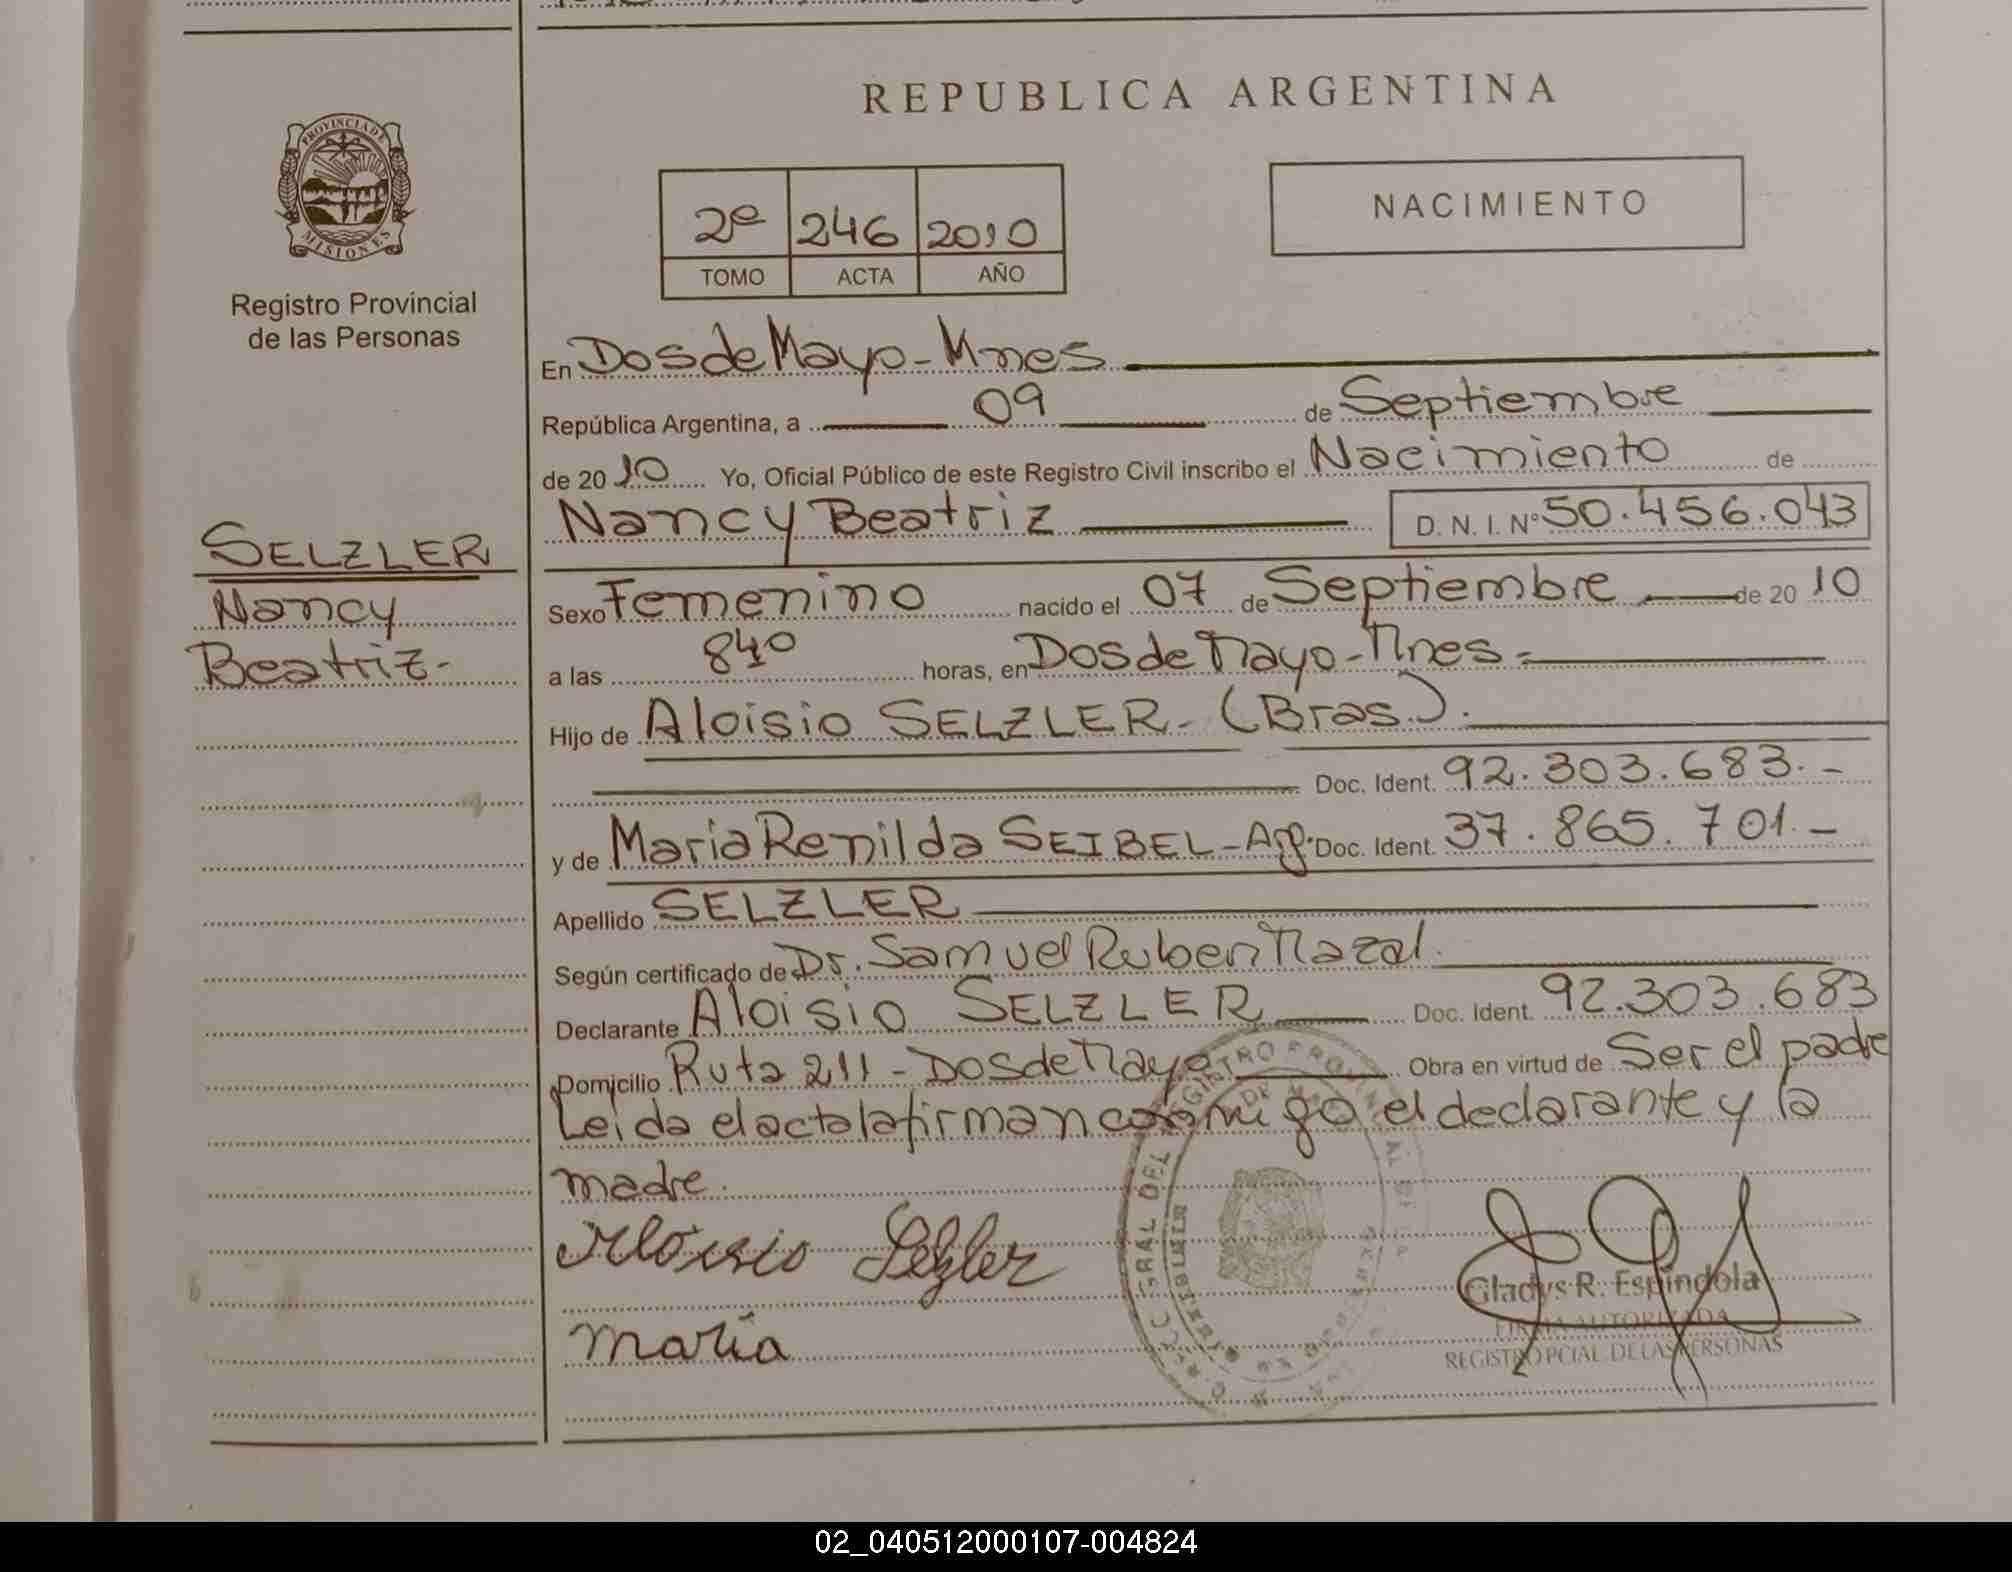 REPUBLICA ARGENTINA
PROVINCIA DE
MISIONES
Registro Provincial
de las Personas
2º 246 2010
TOMO ACTA AÑO
NACIMIENTO
En Dos de Mayo - Mnes
República Argentina, a 09 de Septiembre
de 2010 Yo, Oficial Público de este Registro Civil inscribo el Nacimiento de
Nancy Beatriz D. N. I. Nº 50.456.043
SELZLER
Nancy
Beatriz.-
Sexo Femenino nacido el 07 de Septiembre de 2010
a las 840 horas, en Dos de Mayo - Mnes.-
Hijo de Aloisio SELZLER - (Bras.).
Doc. Ident. 92.303.683.-
y de Maria Renilda SEIBEL - Arg. Doc. Ident. 37.865.701.-
Apellido SELZLER
Según certificado de Dr. Samuel Ruben Mazal.
Declarante Aloisio SELZLER Doc. Ident. 92.303.683
Domicilio Ruta 211 - Dos de Mayo Obra en virtud de Ser el padre
Leida el acta la firman conmigo el declarante y la
madre.
Aloisio Selzler
maria
Gladys R. Espindola
FIRMA AUTORIZADA
REGISTRO PCIAL. DE LAS PERSONAS
02_040512000107-004824